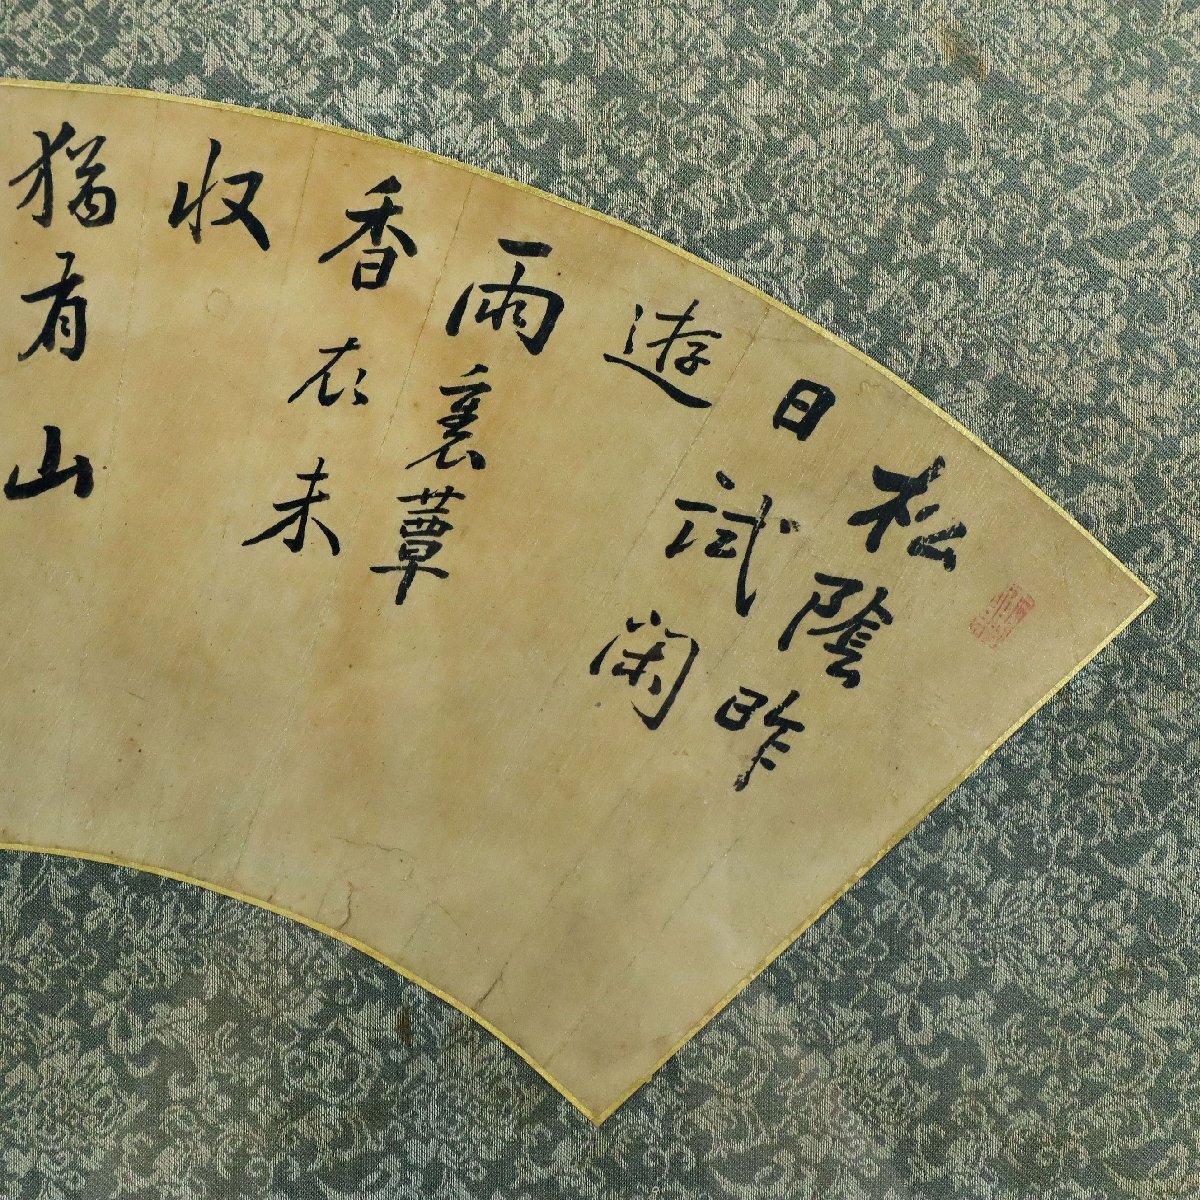 松陰昨
日試閑
遊
雨裛蕈
香衣未
収
猶有山